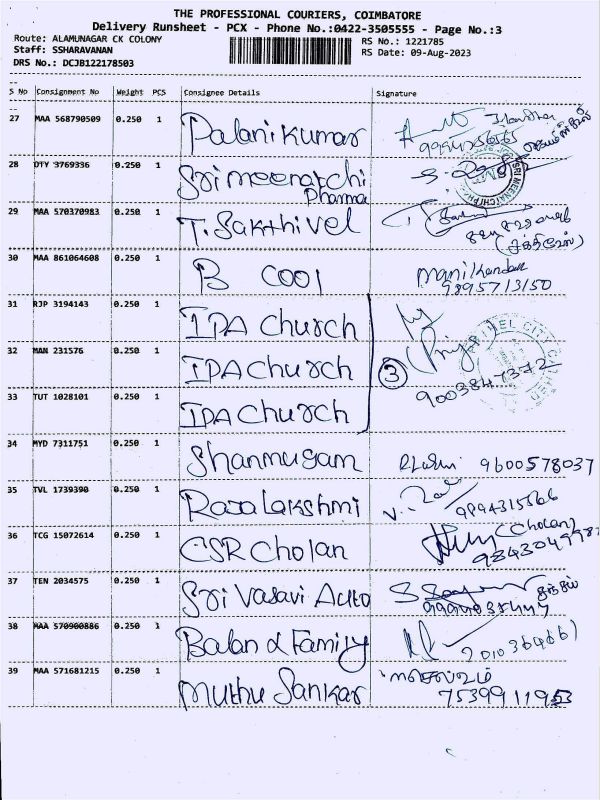 THE PROFESSIONAL COURIERS, COIMBATORE
Delivery Runsheet - PCX - Phone No.:0422-3505555 - Page No.:3
Route: ALAMUNAGAR CK COLONY RS No.: 1221785
Staff: SSHARAVANAN RS Date: 09-Aug-2023
DRS No.: DCJB122178503
S No Consignment No Weight PCS Consignee Details Signature
27 MAA 568790509 0.250 1 Palanikumar
28 DTY 3769336 0.250 1 Sri meenatchi Pharma
29 MAA 570370983 0.250 1 T. Sakthivel
(சக்திவேல்)
30 MAA 861064608 0.250 1 B cool Manikandan
9895713150
31 RJP 3194143 0.250 1 IPA Church
32 MAN 231576 0.250 1 IPA Church 3 (Priya)
9003847372
33 TUT 1028101 0.250 1 IPA Church
34 MYD 7311751 0.250 1 Shanmugam 9600578037
35 TVL 1739390 0.250 1 Rajalakshmi
36 TCG 15072614 0.250 1 CSR Cholan (Cholan)
37 TEN 2034575 0.250 1 Sri Vasavi Auto
38 MAA 570900886 0.250 1 Balan & Family
39 MAA 571681215 0.250 1 Muthu Sankar
7539911953